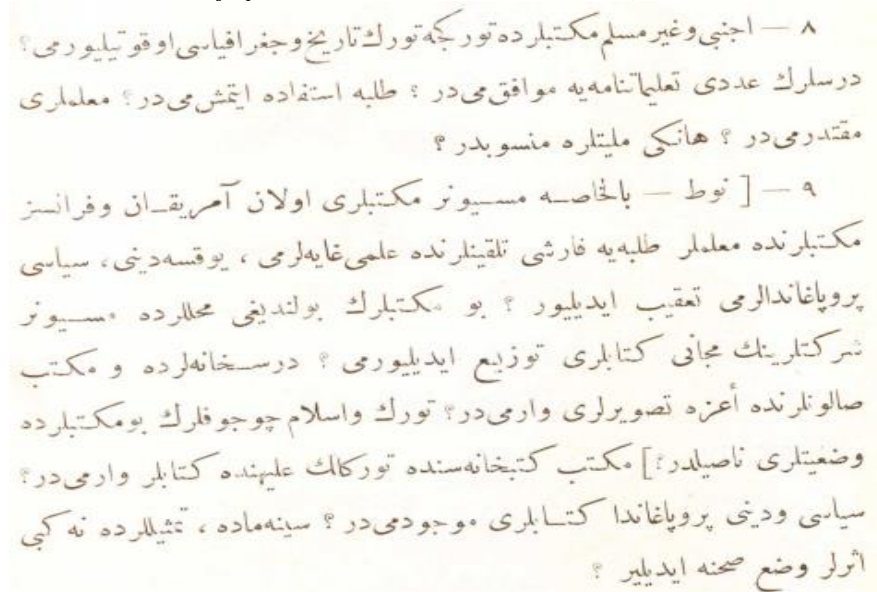 ٨ — اجنبی وغیر مسلم مکتبلر ده تورکجه تورك تاریخ وجغرافیاسی اوقوتیلیورمی؟
درسلرك عددی تعلیماتنامه‌یه موافق می‌در ؟ طلبه استفاده ایتمش می‌در؟ معلملری
مقتدرمی‌در ؟ هانکی ملیتلره منسوبدر ؟
٩ — [ نوط — بالخاصه مسیونر مکتبلری اولان آمریقان وفرانسز
مکتبلرنده معلملر طلبه‌یه قارشی تلقینلرنده علمی غایه‌لرمی ، یوقسه دینی، سیاسی
پروپاغاندالرمی تعقیب ایدیلیور ؟ بو مکتبلرك بولندیغی محللرده مسیونر
شرکتلرینك مجانی کتابلری توزیع ایدیلیورمی ؟ درسخانه‌لرده و مکتب
صالونلرنده أعزه تصویرلری وارمی‌در؟ تورك واسلام چوجوقلرك بومکتبلرده
وضعیتلری ناصیلدر؟] مکتب کتبخانه‌سنده تورکلك علیهنده کتابلر وارمی‌در؟
سیاسی ودینی پروپاغاندا کتابلری موجودمی‌در ؟ سینه‌ماده ، تمثیللرده نه کبی
اثرلر وضع صحنه ایدیلیر ؟